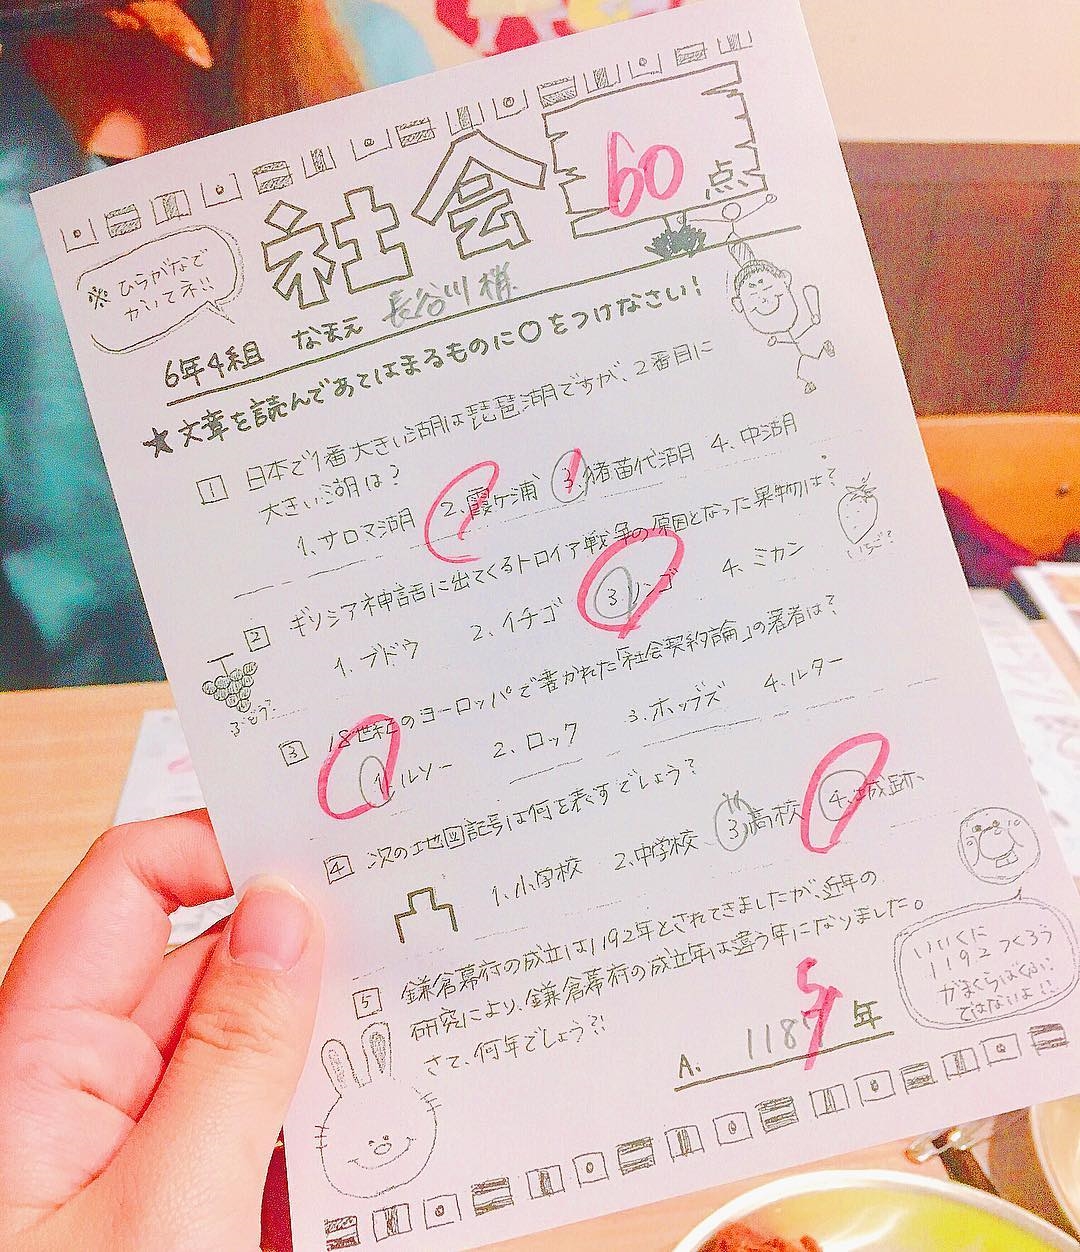 社会
60点
※ひらがなで
かいてネ!!
6年4組 なまえ 長谷川 梢
★文章を読んであてはまるものに○をつけなさい!
1 日本で1番大きい湖は琵琶湖ですが、2番目に
大きい湖は?
1、サロマ湖 2、霞ヶ浦 3、猪苗代湖 4、中湖
2 ギリシア神話に出てくるトロイア戦争の原因となった果物は?
1、ブドウ 2、イチゴ 3、リンゴ 4、ミカン
いちご?
ぶどう?
3 18世紀のヨーロッパで書かれた「社会契約論」の著者は?
1、ルソー 2、ロック 3、ホッブズ 4、ルター
4 次の地図記号は何を表すでしょう?
1、小学校 2、中学校 3、高校 4、城跡
5 鎌倉幕府の成立は1192年とされてきましたが、近年の
研究により、鎌倉幕府の成立年は違う年になりました。
さて、何年でしょう?!
いいくに
1192つくろう
かまくらばくふ!
ではないよ!!
5
A. 1187年